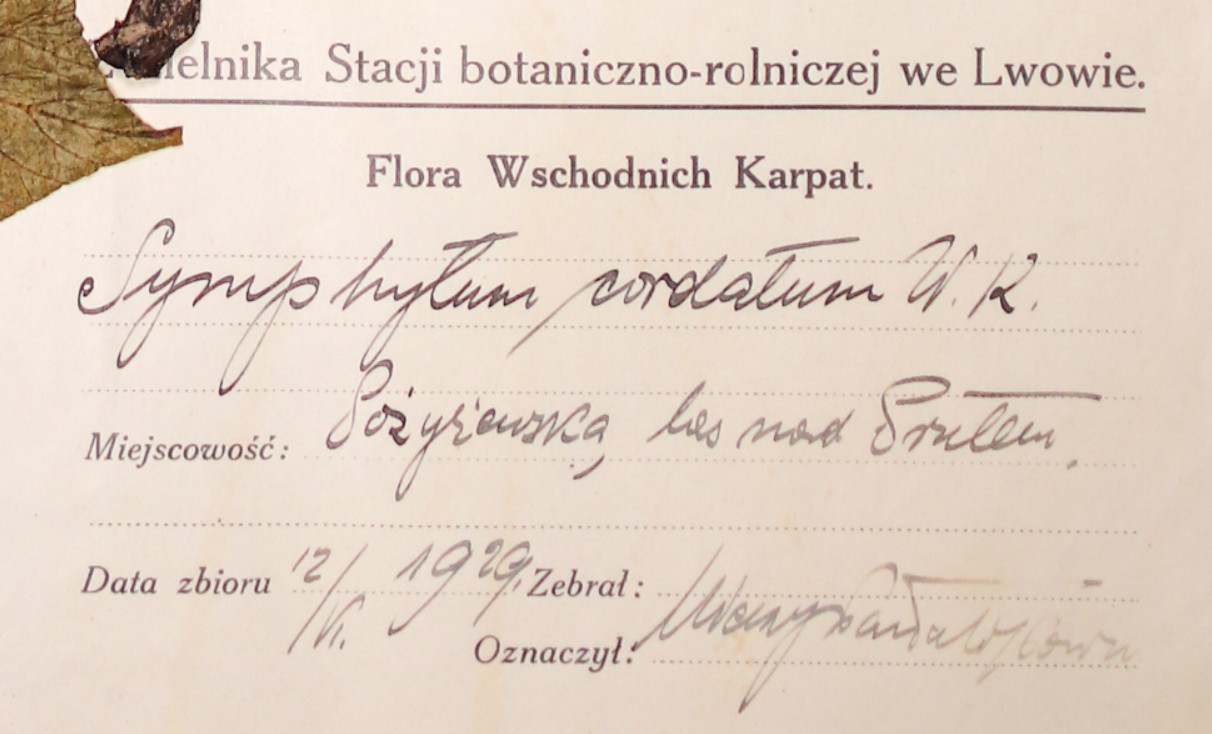 Zielnika Stacji botaniczno-rolniczej we Lwowie.
Flora Wschodnich Karpat.
Symphytum cordatum W. K.
Miejscowość: Pożyżewska, las nad Prutem,
Data zbioru 12/VI. 1929, Zebrał:
Oznaczył: